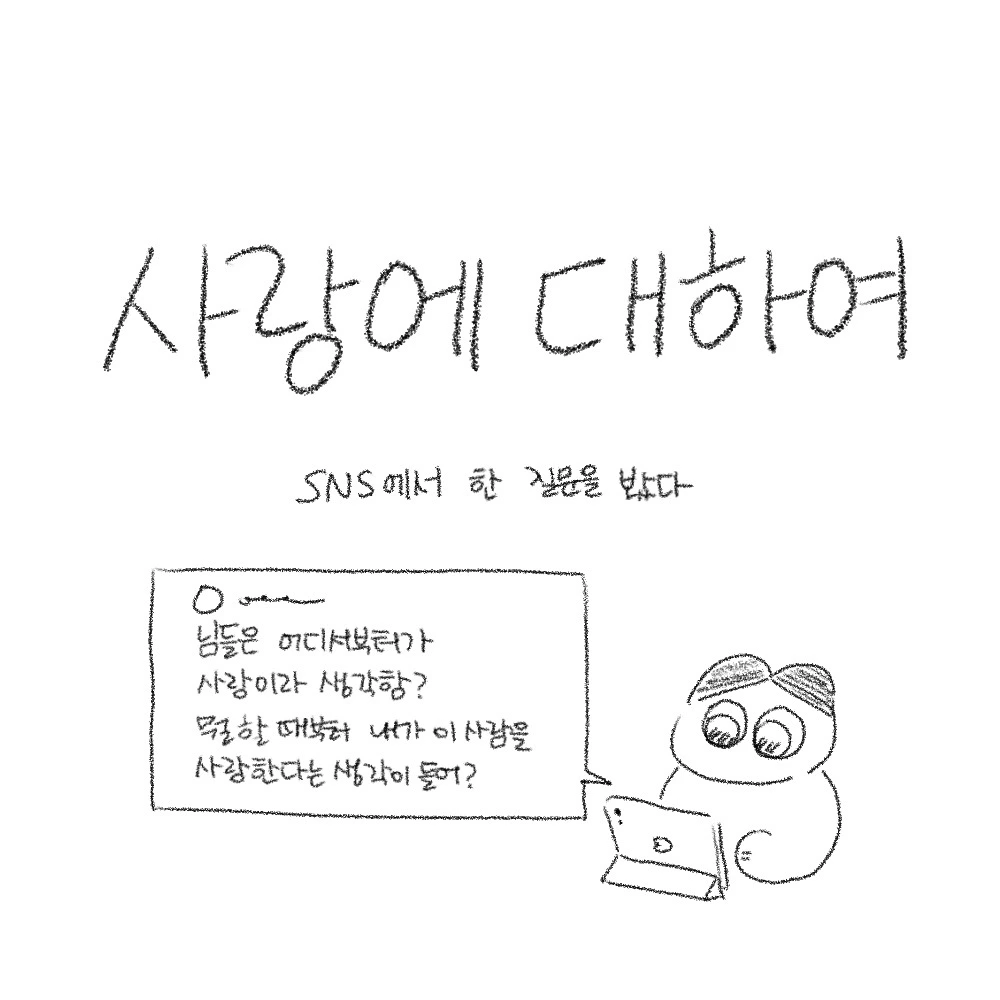 사랑에 대하여
SNS에서 한 질문을 봤다
님들은 어디서부터가
사랑이라 생각함?
뭐할 때부터 내가 이 사람을
사랑한다는 생각이 들어?